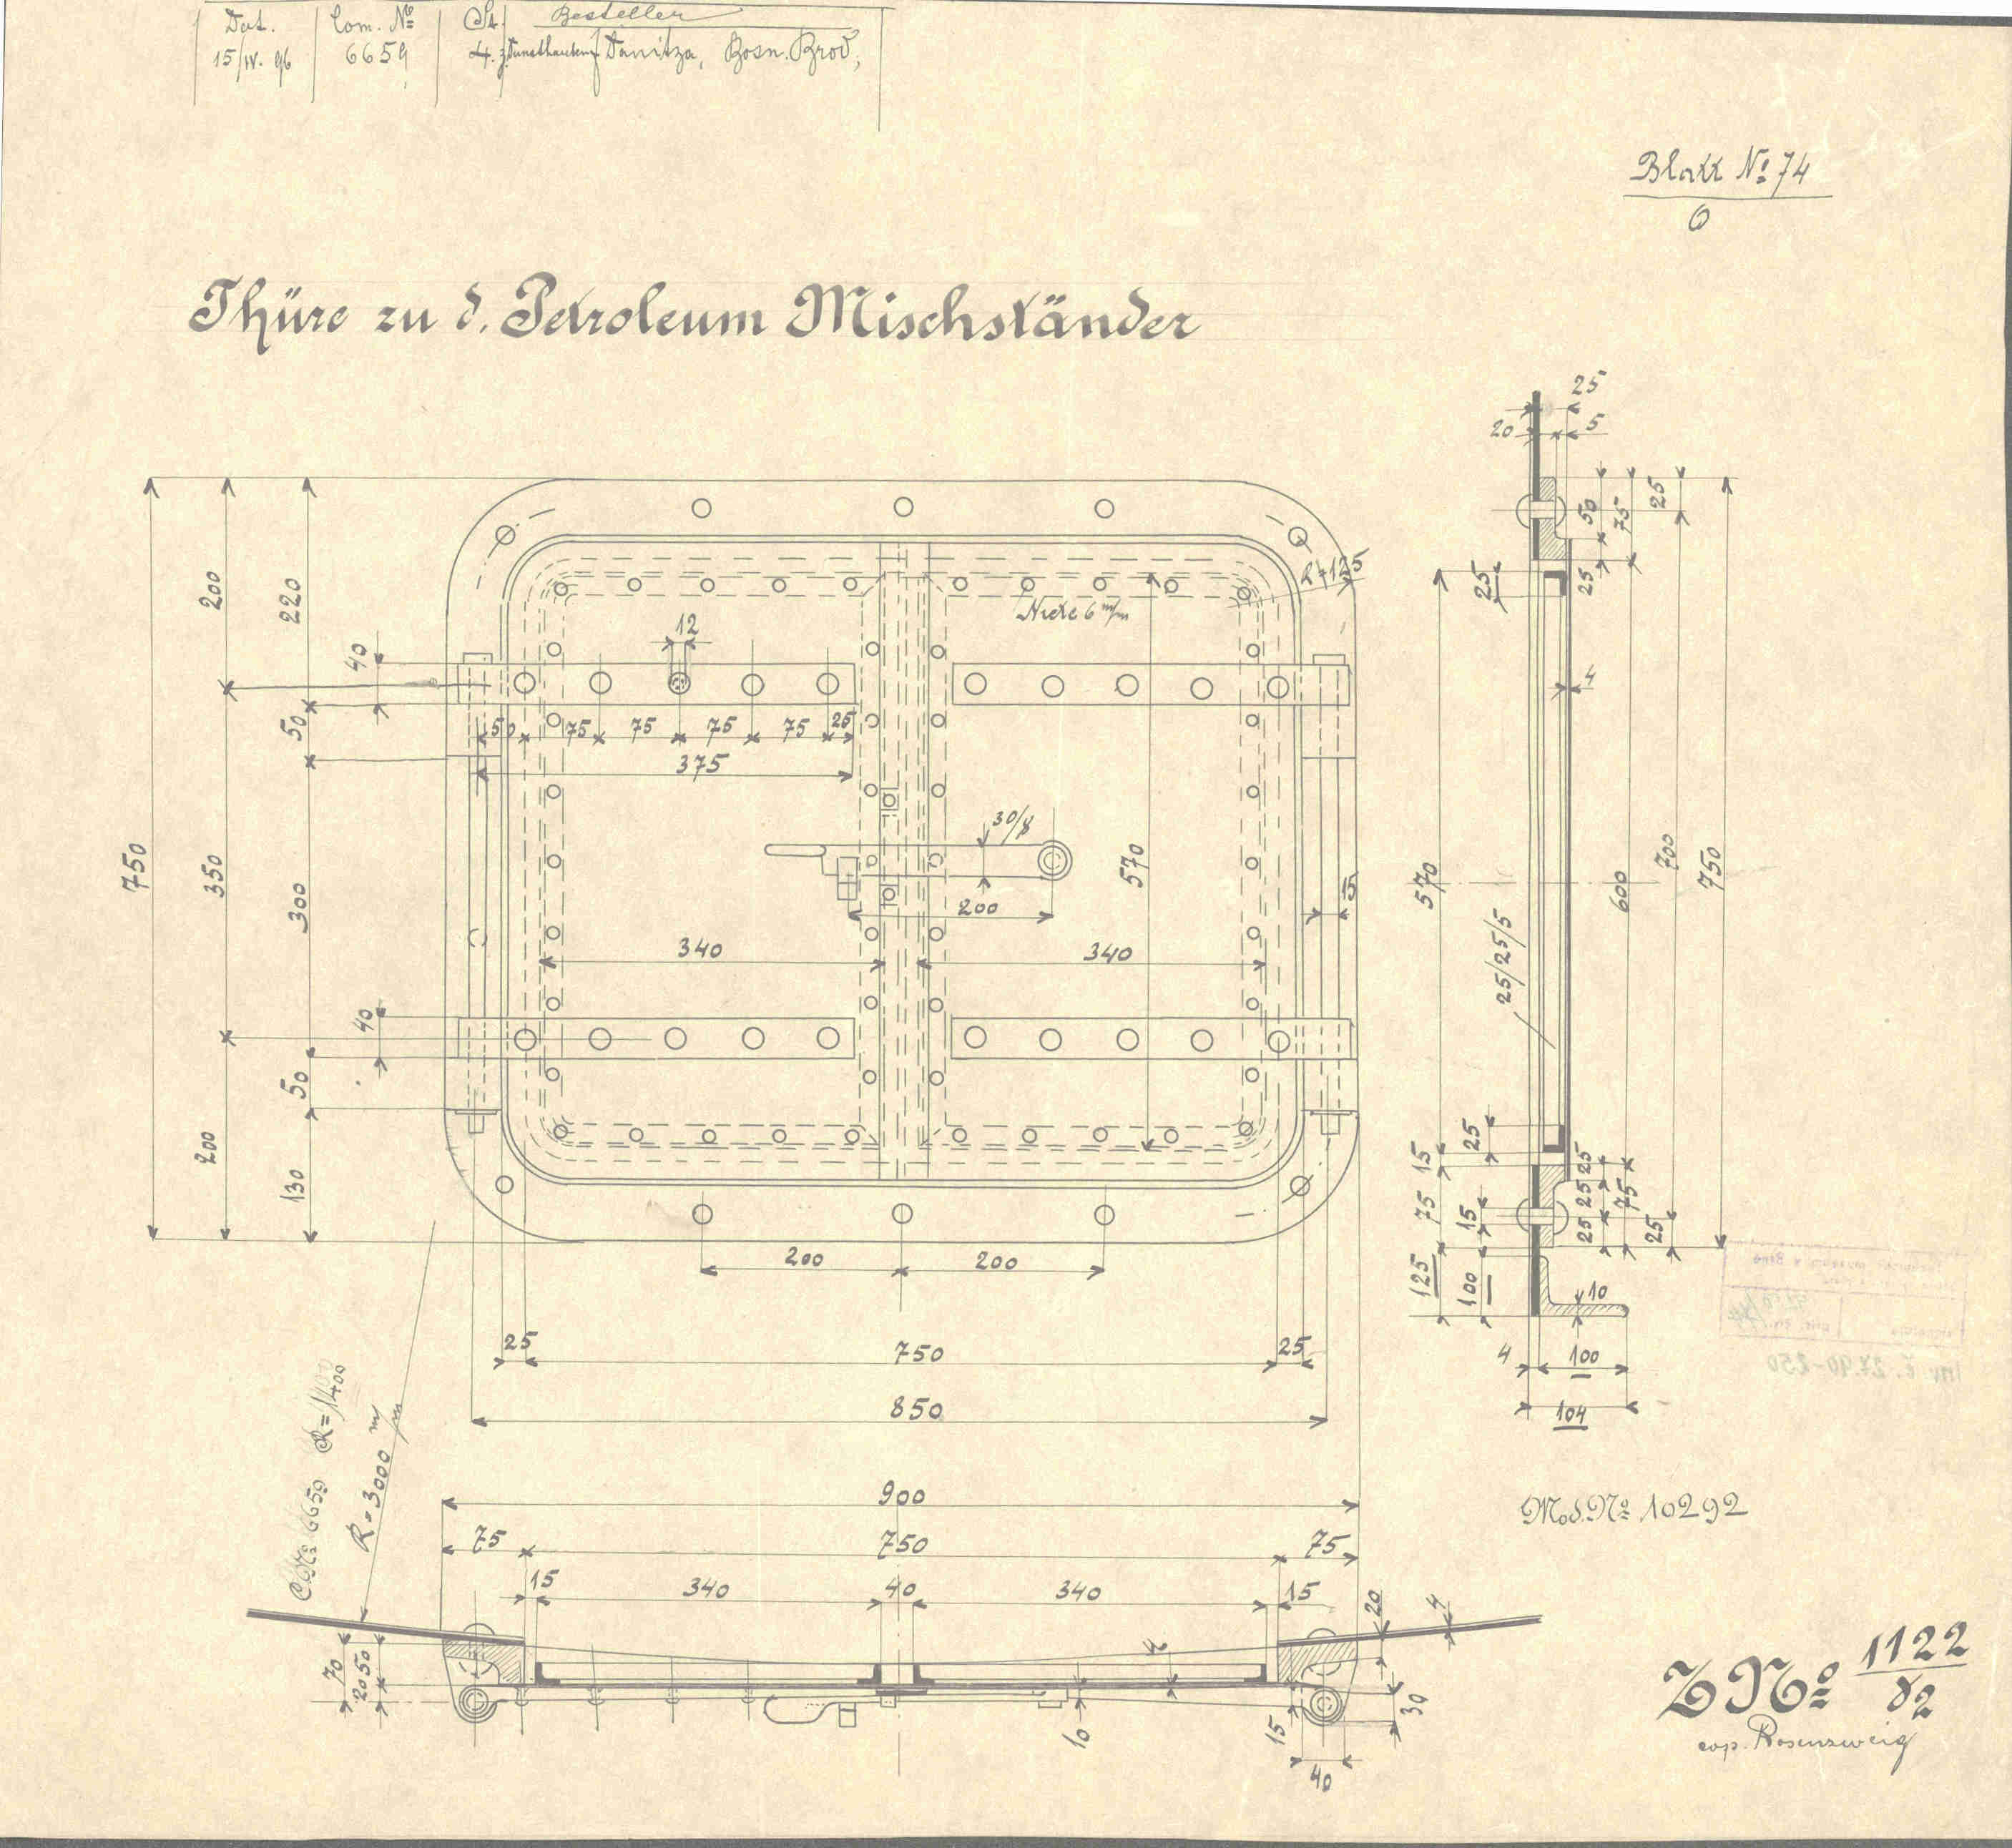 Dat. Com. No St. Besteller
15/IV. 96 6659 4. Danitza, Bosn. Brod,
Blatt No 74
6
Thüre zu d. Petroleum Mischständer
25
20 5
50 75 25
25 25
200 220 40
R=125
Niete 6 m/m
12
4
50 75 75 75 75 25
50
375
30/8
750 350 300
570
15
570 600 700 750
200
340 340
25/25/5
40
50
200 130
15 25 25
75 15 25 75
25 25
125 100
10
200 200
25 750 25
4 100
850
104
C.No 6659 R=1400
R=3000 m/m
900
Mod.No 10292
75 750 75
15 340 40 340 15
20 4
70 50 20
4
30
10 15
40
Z No 1122
82
cop. Rosenzweig